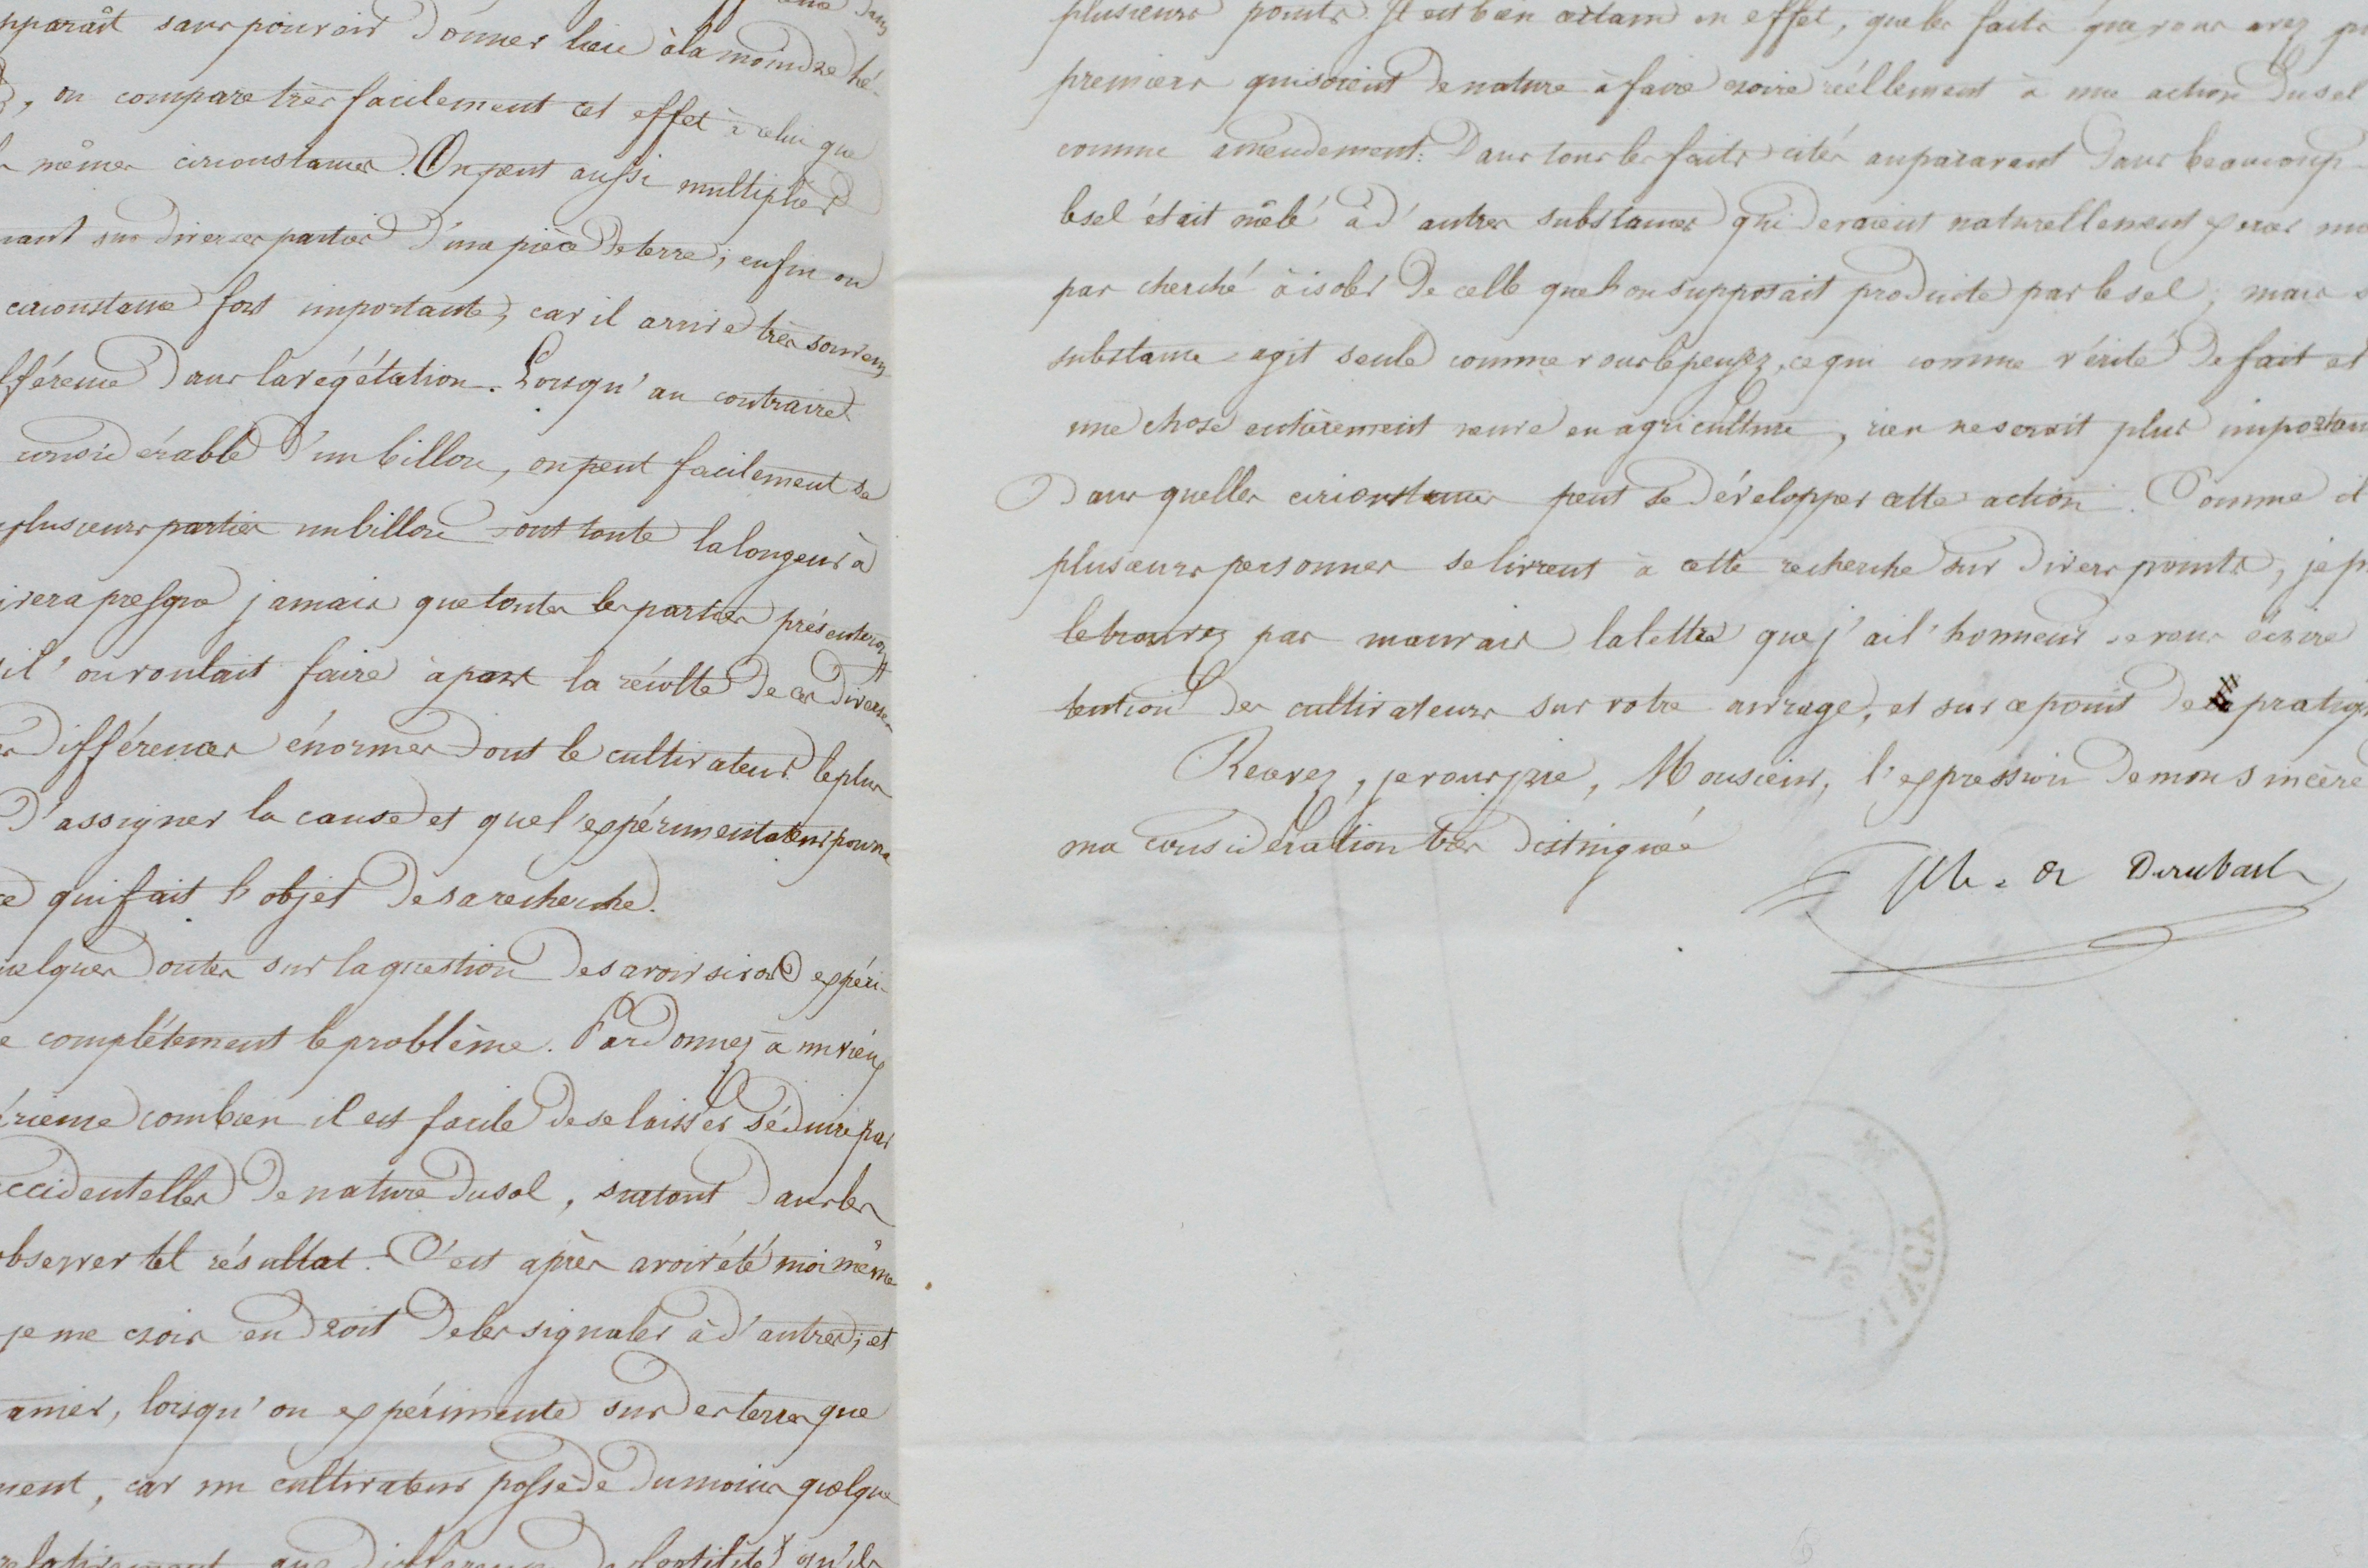 pparaît sans pouvoir donner lieu à la moindre hé-
, on compare très facilement cet effet à celui que
mêmes circonstances. On peut aussi multiplier
nant sur diverses parties d'une pièce de terre ; enfin on
circonstance fort important, car il arrive très souvent
fférence dans la végétation. Lorsqu'au contraire
considérable d'un billon, on peut facilement se
plusieurs parties un billon dont toute la longeur à
ivera presque jamais que toutes les parties présenteront
si l'on voulait faire à part la récolte de ces diverses
différences énormes dont le cultivateur le plus
d'assigner la cause et que l'expérimentateur pourra
ce qui fait l'objet de sa recherche.
uelques doutes sur la question de savoir si vos expéri-
e complétement le problème. Pardonnez à un vieux
érience combien il est facile de se laisser séduire par
ccidentelles de nature du sol, surtout dans les
observer tel résultat. C'est après avoir été moi même
je me crois en droit de les signaler à d'autres ; et
amier, lorsqu'on expérimente sur des terres que
ment, car un cultivateur possède du moins quelque
relativement aux différences de fertilité qu'ils
plusieurs points. Il est bien certain en effet, que les faits que vous avez pu
premiers qui soient de nature à faire croire réellement à une action du sel
comme amendement. Dans tous les faits cités auparavant dans beaucoup
le sel était mêlé à d'autres substances qui devaient naturellement exercer
pas cherché à isoler de celle que l'on supposait produite par le sel ; mais s
substance agit seule comme vous le pensez, ce qui comme vérité de fait et
une chose entièrement neuve en agriculture, rien ne serait plus important
Dans quelles circonstances peut se développer cette action. Comme il
plusieurs personnes se livrent à cette recherche sur divers points, je p
le trouvez pas mauvais la lettre que j'ai l'honneur de vous écrire
tention des cultivateurs sur votre ouvrage, et sur ce point de pratiq
Recevez, je vous prie, Monsieur, l'expression de mon sincère
ma considération très distinguée